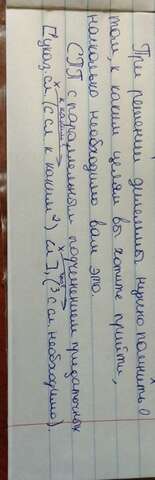 При решении дилеммы нужно помнить о
том, к каким целям вы хотите прийти,
насколько необходимо вам это.
СПП с параллельным подчинением придаточных
[указ. сл (с сл к каким²) сл], (³с сл. необходимо).